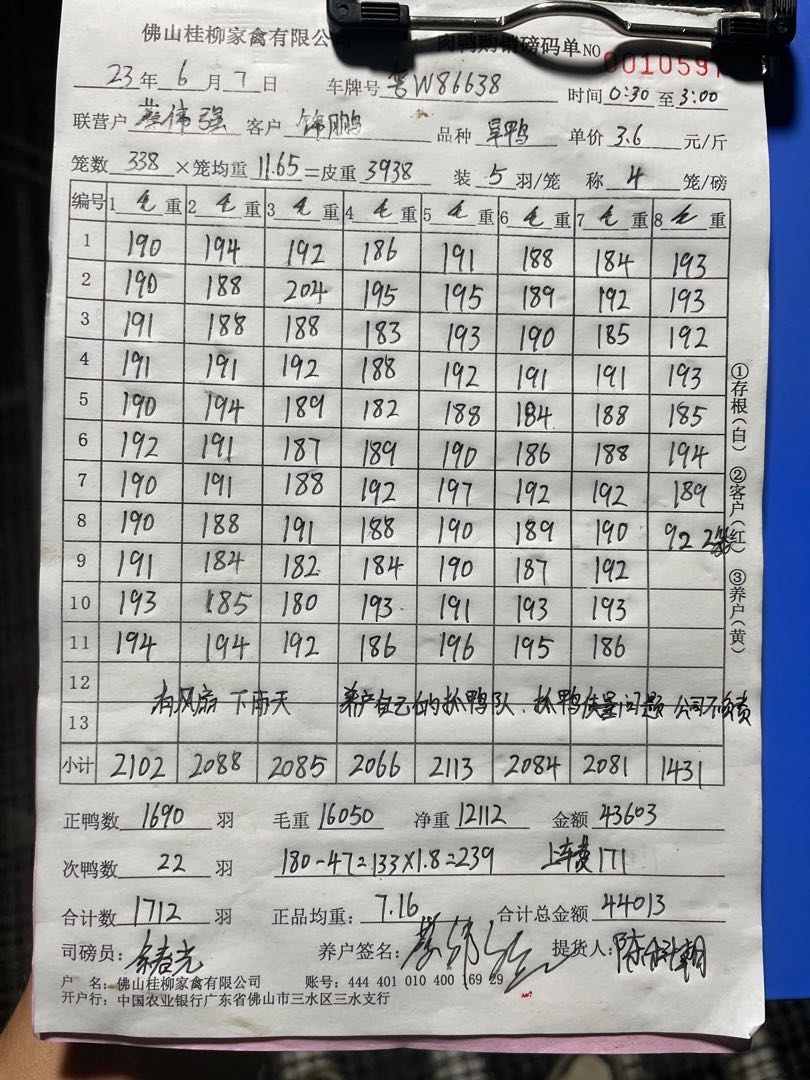 佛山桂柳家禽有限公司 肉鸭购销磅码单 NO 001059
23年6月7日 车牌号 粤W86638 时间 0:30 至 3:00
联营户 蔡伟强 客户 锦鹏 品种 旱鸭 单价 3.6 元/斤
笼数 338 ×笼均重 11.65 =皮重 3938 装 5 羽/笼 称 4 笼/磅
编号 1 毛重 2 毛重 3 毛重 4 毛重 5 毛重 6 毛重 7 毛重 8 毛重
1 190 194 192 186 191 188 184 193
2 190 188 204 195 195 189 192 193
3 191 188 188 183 193 190 185 192
4 191 191 192 188 192 191 191 193
5 190 194 189 182 188 184 188 185
6 192 191 187 189 190 186 188 194
7 190 191 188 192 197 192 192 189
8 190 188 191 188 190 189 190 92 2
9 191 184 182 184 190 187 192
10 193 185 180 193 191 193 193
11 194 194 192 186 196 195 186
12
有风扇 下雨天 养户自己的抓鸭队、抓鸭质量问题 公司不负责
13
小计 2102 2088 2085 2066 2113 2084 2081 1431
正鸭数 1690 羽 毛重 16050 净重 12112 金额 43603
次鸭数 22 羽 180-47=133×1.8=239 上车费171
合计数 1712 羽 正品均重: 7.16 合计总金额 44013
司磅员: 养户签名: 提货人:
户 名: 佛山桂柳家禽有限公司 账号: 444 401 010 400 169 29
开户行: 中国农业银行广东省佛山市三水区三水支行
①存根(白) ②客户(红) ③养户(黄)